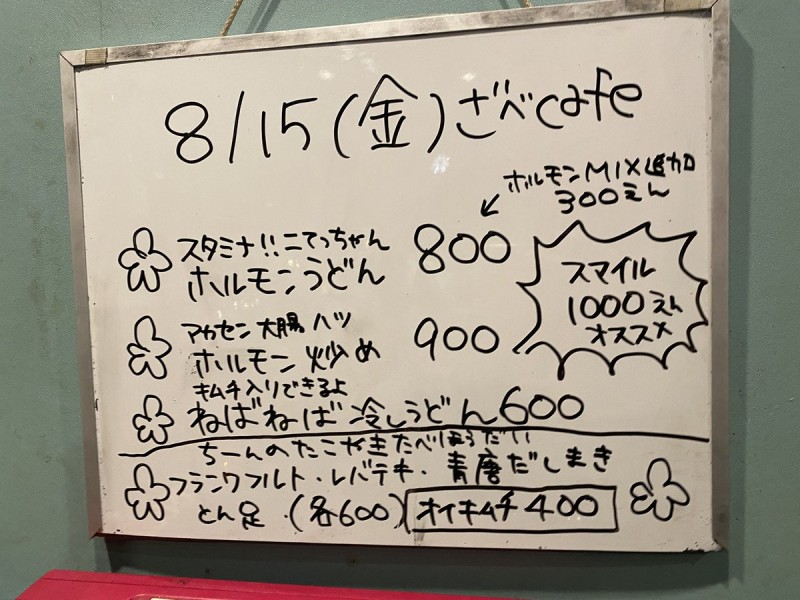 8/15(金)ざべcafe
ホルモンMIX追加
300えん
スタミナ!!こてっちゃん
ホルモンうどん 800
スマイル
1000えん
オススメ
アカセン 大腸 ハツ
ホルモン炒め 900
キムチ入りできるよ
ねばねば冷しうどん600
ちーんのたこやきたべほうだい
フランクフルト・レバテキ・青唐だしまき
とん足・(各600) オイキムチ400